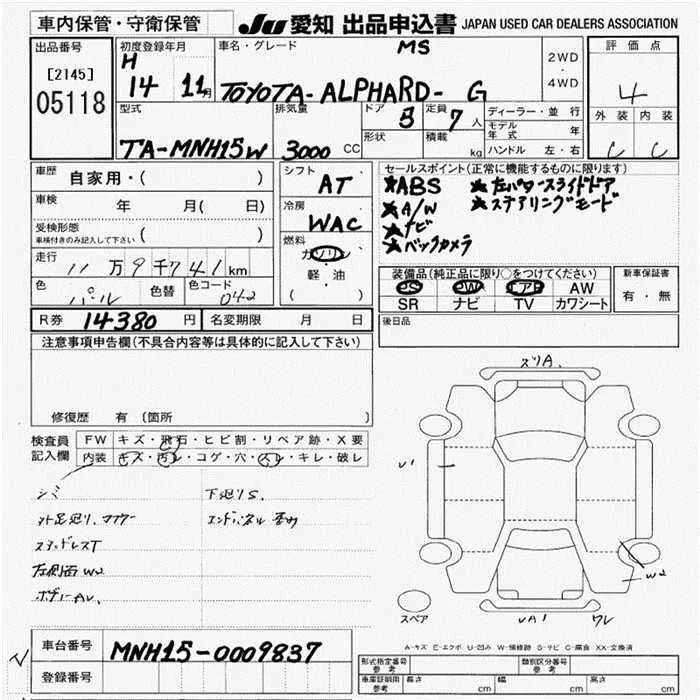 車内保管・守衛保管
JU 愛知 出品申込書 JAPAN USED CAR DEALERS ASSOCIATION
出品番号
[2145]
05118
初度登録年月
H
14 11月
車名・グレード MS
TOYOTA-ALPHARD- G
2WD
4WD
評価点
4
外装 内装
C C
型式
TA-MNH15W
排気量
3000 CC
ドア
形状
定員 7 人
積載 kg
ディーラー・並行
モデル年式 年
ハンドル 左・右
車歴 自家用・( )
車検 年 月( 日)
受検形態
車検付きのみ記入して下さい ( )
走行 11万9千741km
色 パール 色替 色コード 042
シフト
AT
冷房
WAC
燃料
ガソリン
軽・油
( )
セールスポイント(正常に機能するものに限ります)
★ABS ★左パワースライドドア
★A/W ★ステアリングモード
★ナビ
★バックカメラ
装備品(純正品に限り○をつけてください)
PS PW エアB AW
SR ナビ TV カワシート
新車保証書
有・無
R券 14380 円 名変期限 月 日
後日品
注意事項申告欄(不具合内容等は具体的に記入して下さい)
修復歴 有 〔箇所 〕
検査員
記入欄
FW キズ・飛石・ヒビ割・リペア跡・X要
内装 キズ・汚レ・コゲ・穴・スレ・キレ・破レ
シミ 下廻りS.
スタッドレスT
左側面W2
ボデーAU.
スリA.
U1
W2
UA1
ワレ
スペア
A-キズ E-エクボ U-凹み W-補修跡 S-サビ C-腐食 XX-交換済
車台番号 MNH15-0009837
登録番号
形式指定番号
参考
類別区分番号
参考
車庫証明用
参考
長さ cm 幅 cm 高さ cm